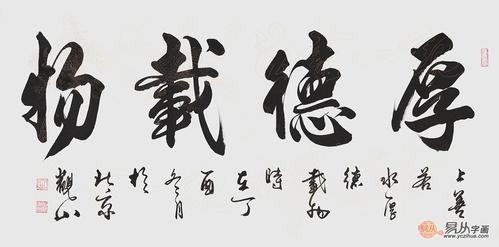 厚德載物
上善若水厚德載物時在丁酉冬月於北京觀山
易从字画
www.yczihua.com